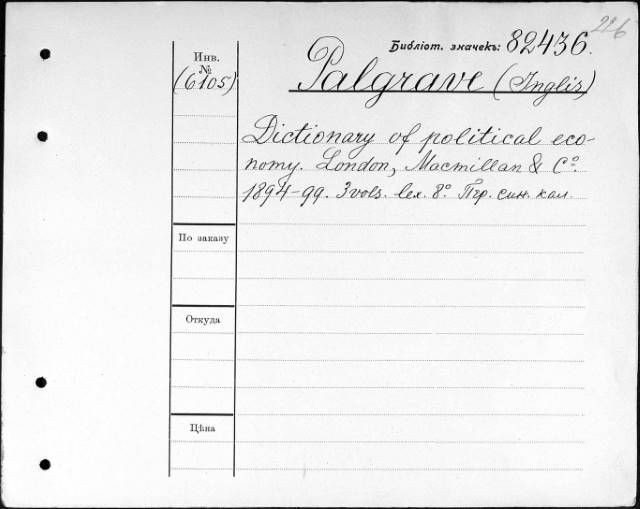 226
Библіот. значекъ: 82436.
Инв.
№
(6105)
Palgrave (Inglis)
Dictionary of political eco-
nomy. London, Macmillan & Cº.
1894-99. 3 vols. lex. 8º. син. кал.
По заказу
Откуда
Цѣна